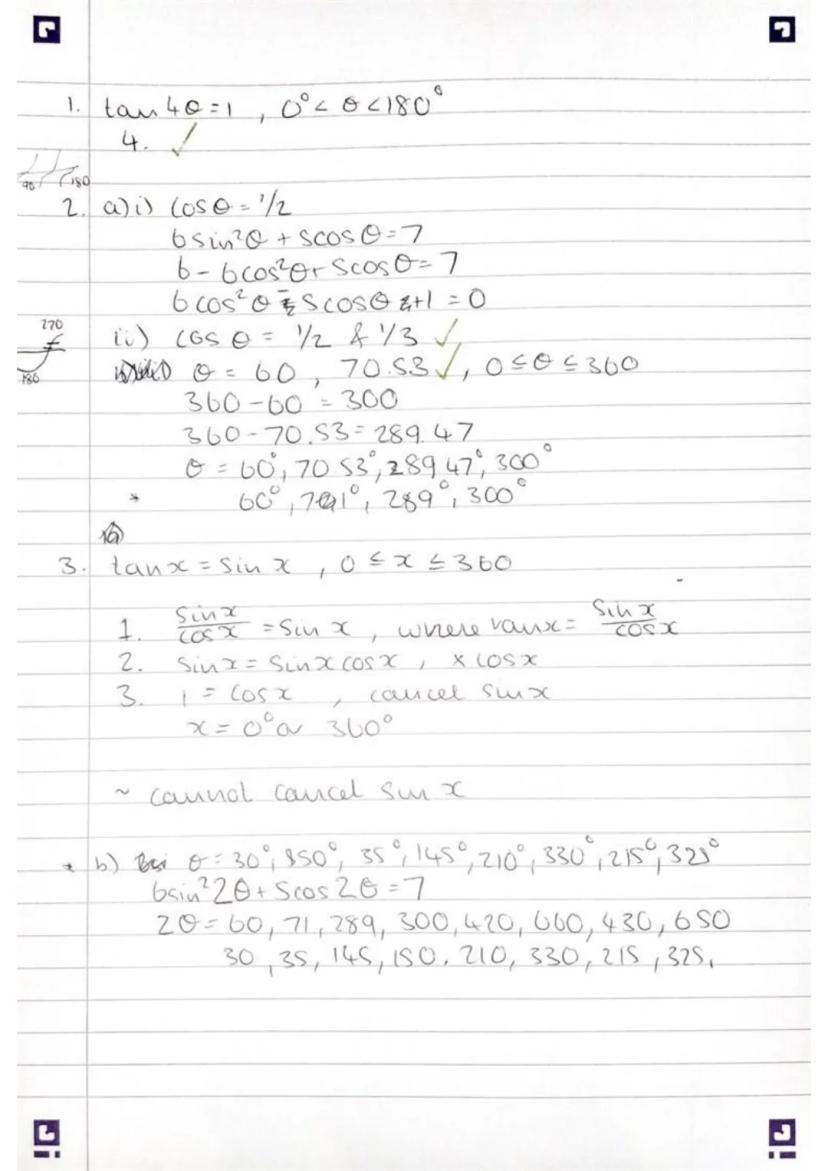 1. tan 4θ = 1 , 0° < θ < 180°
4. ✓
90 180
2. a) i) cos θ = 1/2
6 sin²θ + 5cos θ = 7
6 - 6cos²θ + 5cos θ = 7
6 cos²θ - 5cos θ + 1 = 0
270
180
ii) cos θ = 1/2 & 1/3 ✓
θ = 60 , 70.53 ✓ , 0 ≤ θ ≤ 360
360 - 60 = 300
360 - 70.53 = 289.47
θ = 60°, 70.53°, 289.47°, 300°
* 60°, 71°, 289°, 300°
3. tan x = sin x , 0 ≤ x ≤ 360
1. sin x / cos x = sin x , where tan x = sin x / cos x
2. sin x = sin x cos x , × cos x
3. 1 = cos x , cancel sin x
x = 0° or 360°
~ cannot cancel sin x
* b) θ = 30°, 150°, 35°, 145°, 210°, 330°, 215°, 325°
6sin²2θ + 5cos 2θ = 7
2θ = 60, 71, 289, 300, 420, 660, 430, 650
30, 35, 145, 150, 210, 330, 215, 325,